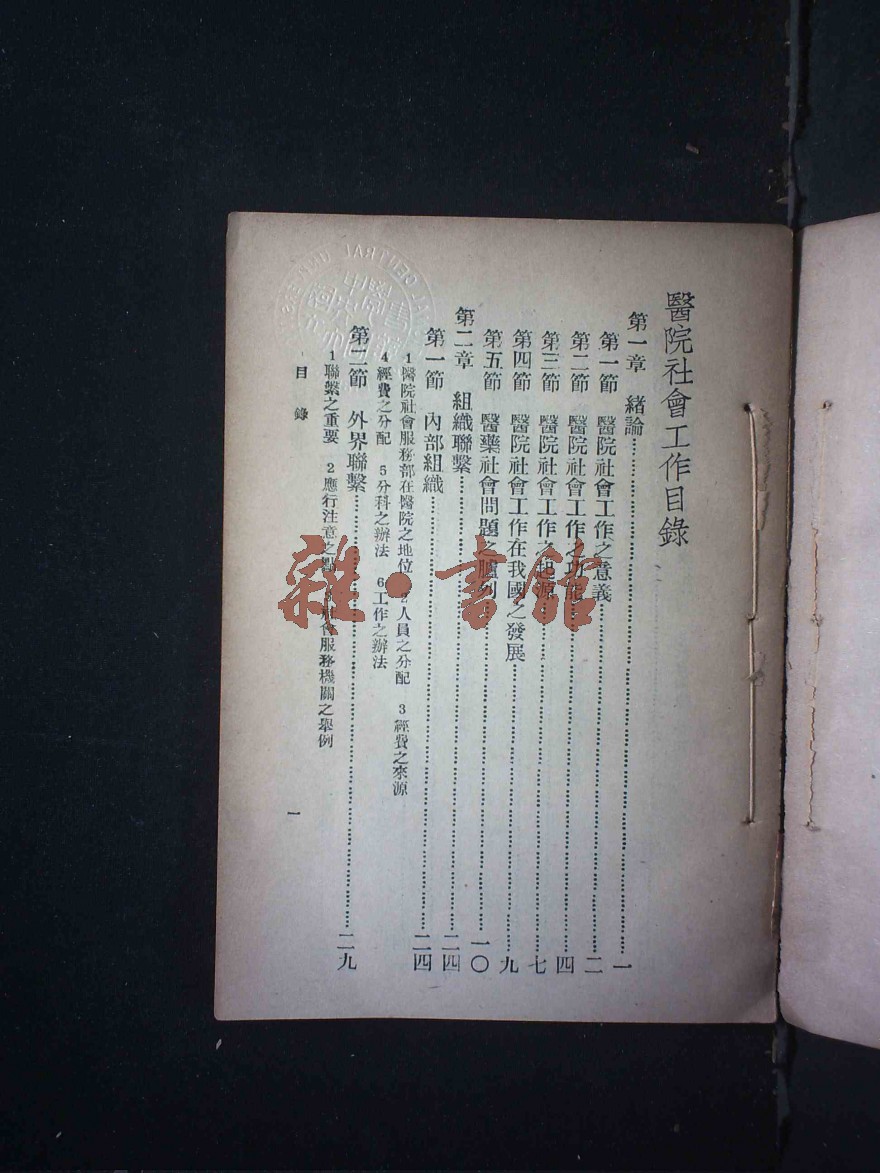 醫院社會工作目錄
第一章 緒論……一
第一節 醫院社會工作之意義……二
第二節 醫院社會工作之功能……四
第三節 醫院社會工作之起源……七
第四節 醫院社會工作在我國之發展……九
第五節 醫藥社會問題之臚列……一〇
第二章 組織聯繫……二四
第一節 內部組織……二四
1醫院社會服務部在醫院之地位 2人員之分配 3經費之來源
4經費之分配 5分科之辦法 6工作之辦法
第二節 外界聯繫……二九
1聯繫之重要 2應行注意之點 社會服務機關之舉例
目錄
一
雜·書館